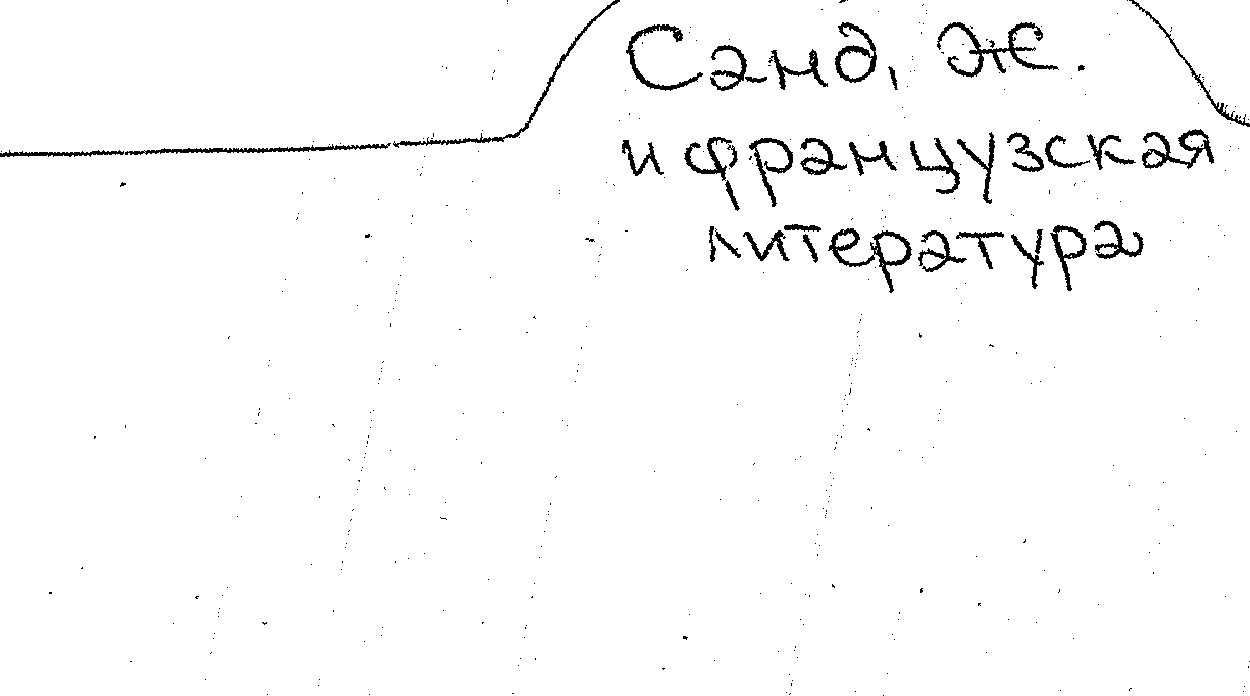 Санд, Ж.
и французская
литература